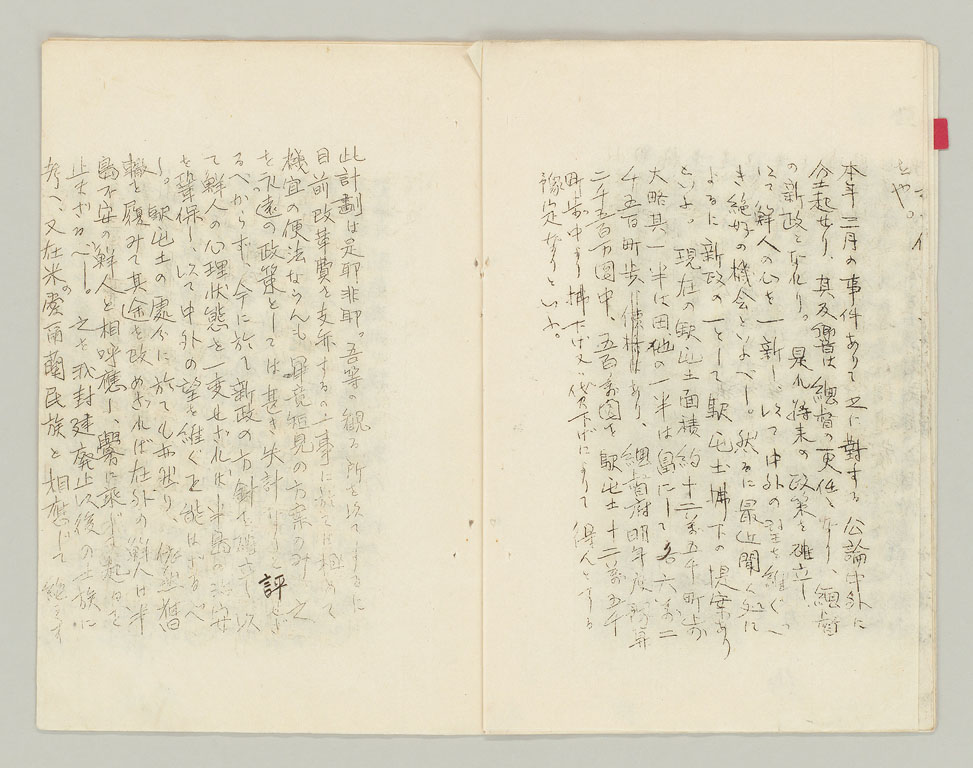 とや。
本年三月の事件ありて之に對する公論中外に
起せり、其反響は總督の更任となり、總督
の新政となれり。是れ将来の政策を確立し
以て鮮人の心を一新し、以て中外の望を維ぐべ
き絶好の機会といふべし。然るに最近聞く処に
よるに新政の一として駅屯土拂下の提案あり
といふ。現在の駅屯土面積約十二萬五千町歩
大略其一半は田他の一半は畠にして各六萬二
千五百町歩 あり、總督府明年度豫算
二千五百万圓中、五百萬圓を駅屯土十二萬五千
町歩中より拂下げ又 下げによりて得んとする
豫定なりといふ。
此計劃は是耶非耶。吾等の観る所を以てするに
目前改革費を支弁するの一事に於ては極めて
機宜の便法ならんも畢竟短見の方案のみ、之
を永遠の政策としては甚き失計なりと評せざ
るべからず、今に於て新政の方針を確立し以
て鮮人の心理状態を一変せざれば半島の治安
を鞏保し、以て中外の望を維ぐこと能はざるべ
し。駅屯土の處分に於ても亦然り、 舊
轍を履みて其途を改めざれば在外の鮮人は半
島不安の鮮人と相呼應し、釁に乗じ起りて
止まざるべし。之を我封建廢止以後の士族に
考へ、又在米愛爾蘭民族と相應じて絶えず